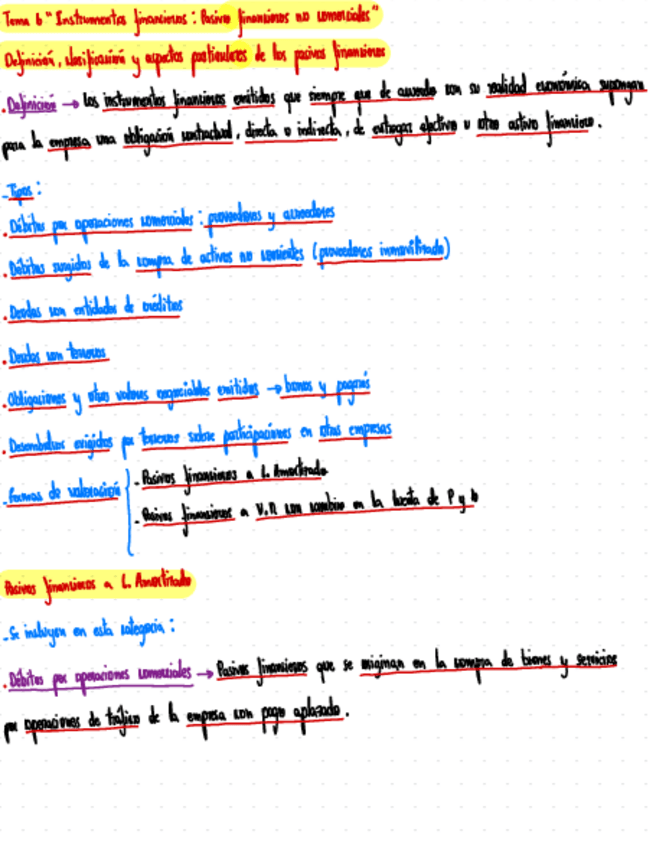 Tema 6 "Instrumentos financieros: Pasivos financieros no comerciales"
Definición, clasificación y aspectos particulares de los pasivos financieros
. Definición → Los instrumentos financieros emitidos que siempre que de acuerdo con su realidad económica supongan
para la empresa una obligación contractual, directa o indirecta, de entregar efectivo u otro activo financiero.
- Tipos:
. Débitos por operaciones comerciales: proveedores y acreedores
. Débitos surgidos de la compra de activos no corrientes (proveedores inmovilizado)
. Deudas con entidades de créditos
. Deudas con terceros
. Obligaciones y otros valores negociables emitidos → bonos y pagarés
. Desembolsos exigidos por terceros sobre participaciones en otras empresas
- Formas de valoración
- Pasivos financieros a C. Amortizado
- Pasivos financieros a V.R con cambio en la cuenta de P y G
Pasivos financieros a C. Amortizado
- Se incluyen en esta categoría:
. Débitos por operaciones comerciales → Pasivos financieros que se originan en la compra de bienes y servicios
por operaciones de tráfico de la empresa con pago aplazado.